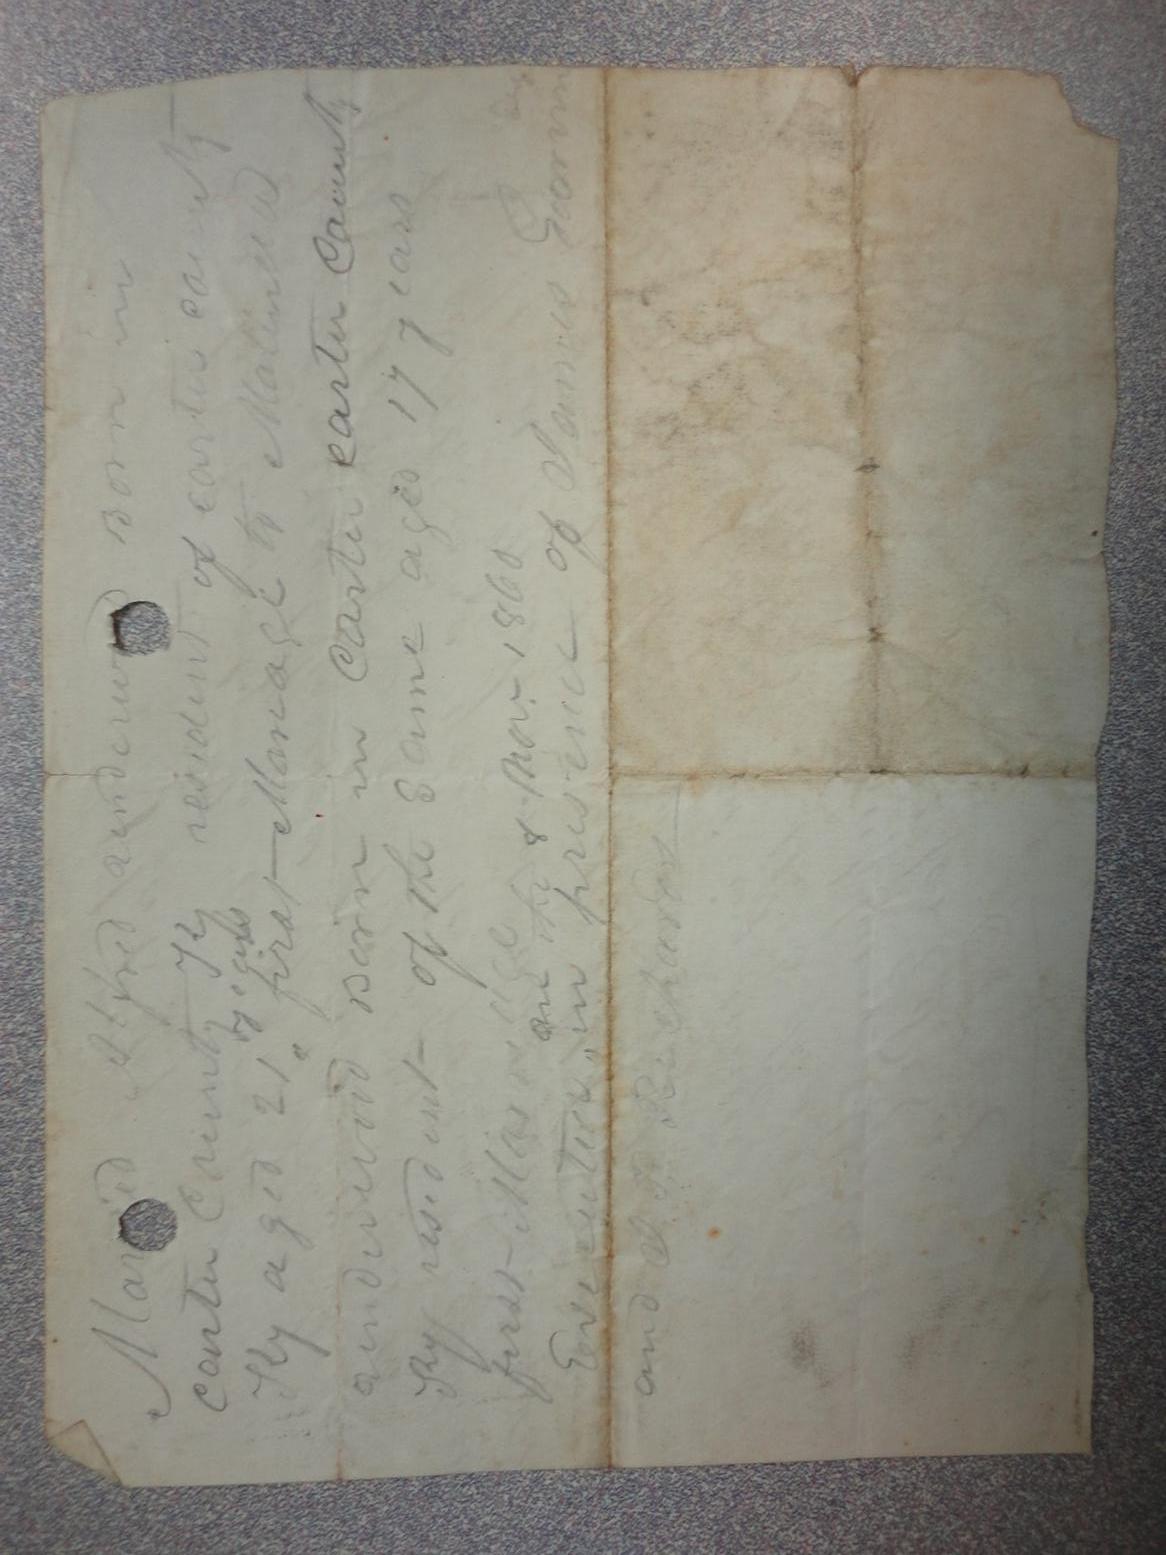 Maried Alfred underwood Born in
carter County Ky resident of carter county
Ky aged 21 years first Mariage to Malinda
underwood Born in carter carter County
Ky resident of the Same aged 17 years
first Mariage
on the 8 Nov 1860
in presence of James
and